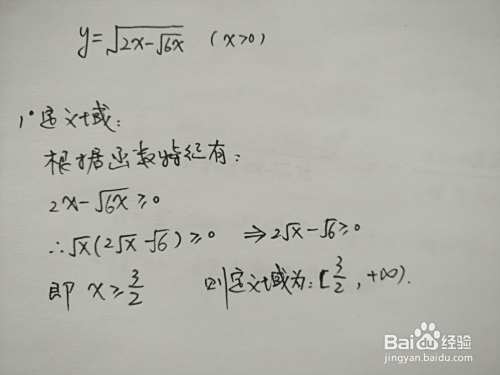 y=√(2x-√(6x)) (x>0)
1°定义域:
根据函数特征有:
2x-√(6x)≥0
∴√x(2√x-√6)≥0 ⇒2√x-√6≥0
即 x≥3/2 则定义域为:[3/2,+∞).
Baidu经验
jingyan.baidu.com